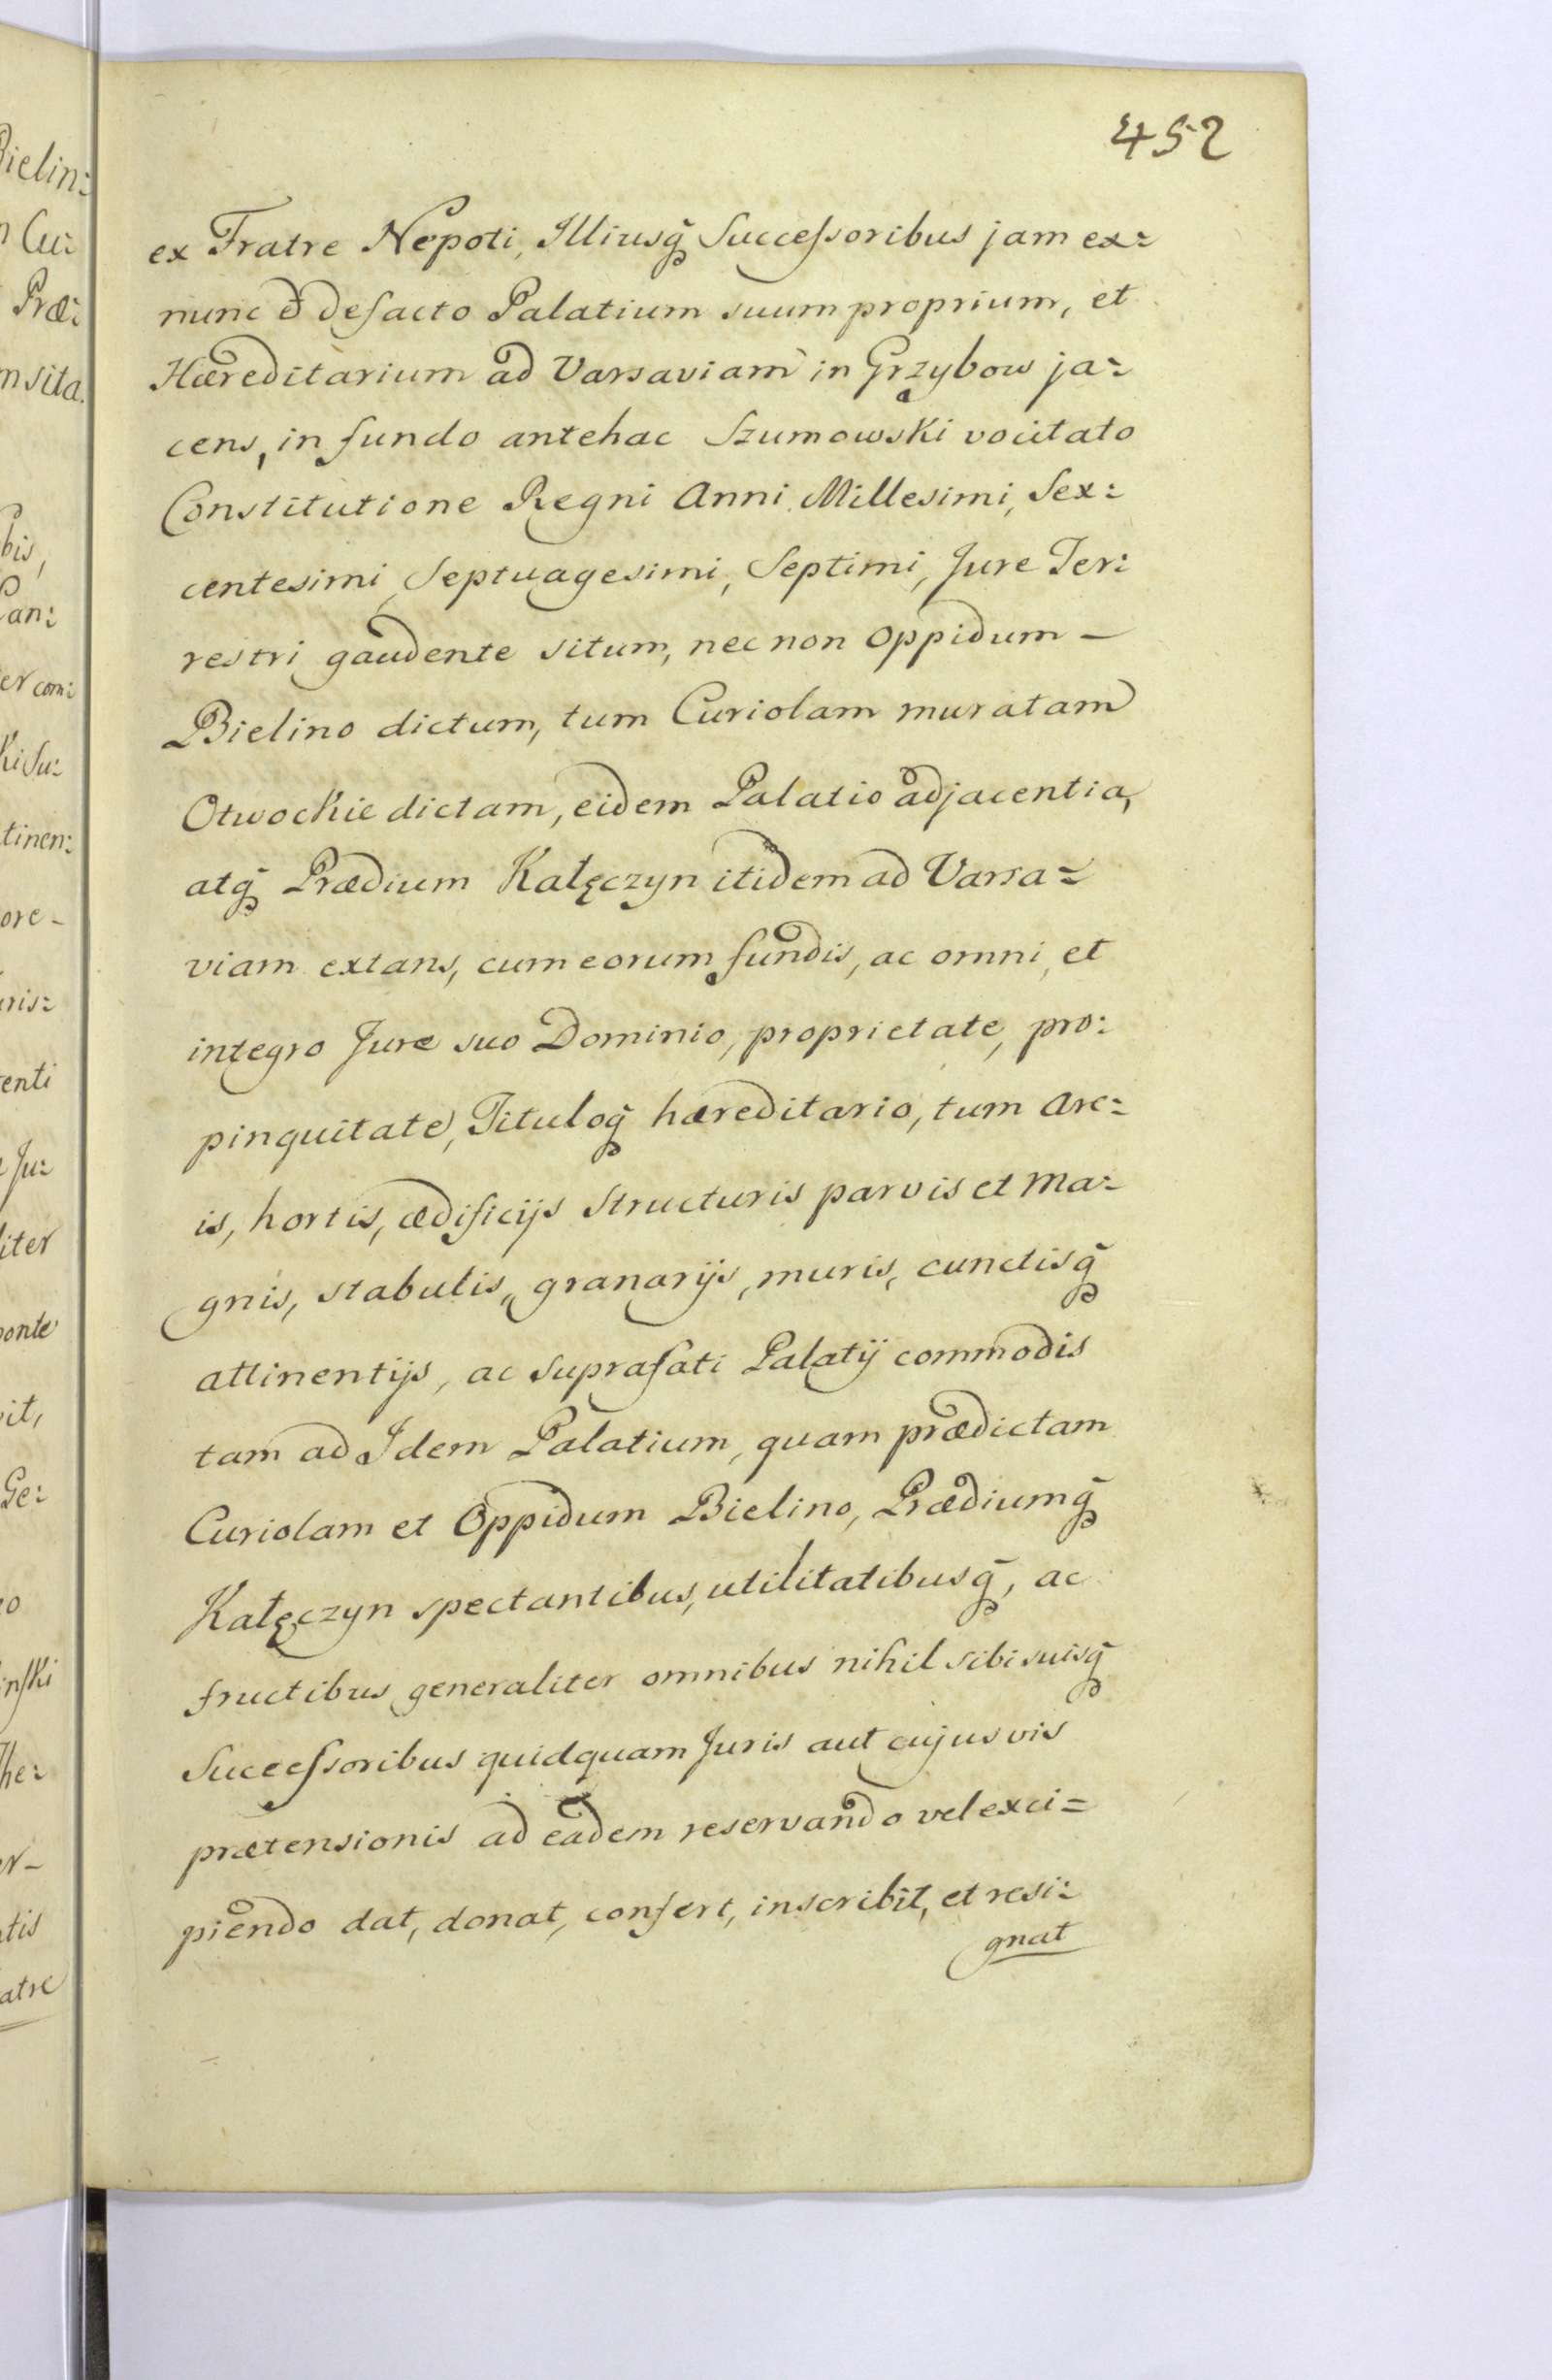 452
ex Fratre Nepoti, Illiusq̃ Successoribus jam ex=
nunc & defacto Palatium suum proprium, et
Hæreditarium ad Varsaviam in Grzybow ja=
cens, in fundo antehac Szumowski vocitato
Constitutione Regni Anni Millesimi, Sex=
centesimi, Septuagesimi, Septimi, Jure Ter=
restri gaudente situm, nec non Oppidum –
Bielino dictum, tum Curiolam muratam
Otwockie dictam, eidem Palatio adjacentia,
atq̃ Prædium Kałęczyn itidem ad Varsa=
viam extans, cum eorum fundis, ac omni, et
integro Jure suo Dominio, proprietate, pro=
pinquitate, Tituloq̃ hæreditario, tum Are=
is, hortis, ædificijs Structuris parvis et Ma=
gnis, stabulis, granarijs, muris, cunctisq̃
attinentijs, ac suprafati Palatij commodis
tam ad Idem Palatium, quam prædictam
Curiolam et Oppidum Bielino, Prædiumq̃
Kałęczyn spectantibus, utilitatibusq̃, ac
fructibus generaliter omnibus nihil sibi suisq̃
Successoribus quidquam Juris aut cujusvis
prætensionis ad eadem reservando vel exci=
piendo dat, donat, confert, inscribit, et resi=
gnat
Bielin=
Cu=
Præ=
sita.
bis,
an=
er com=
ki Su=
tinen=
ore –
uris=
enti
Ju=
liter
ponte
vit,
Ge=
inski
The=
tis
atre